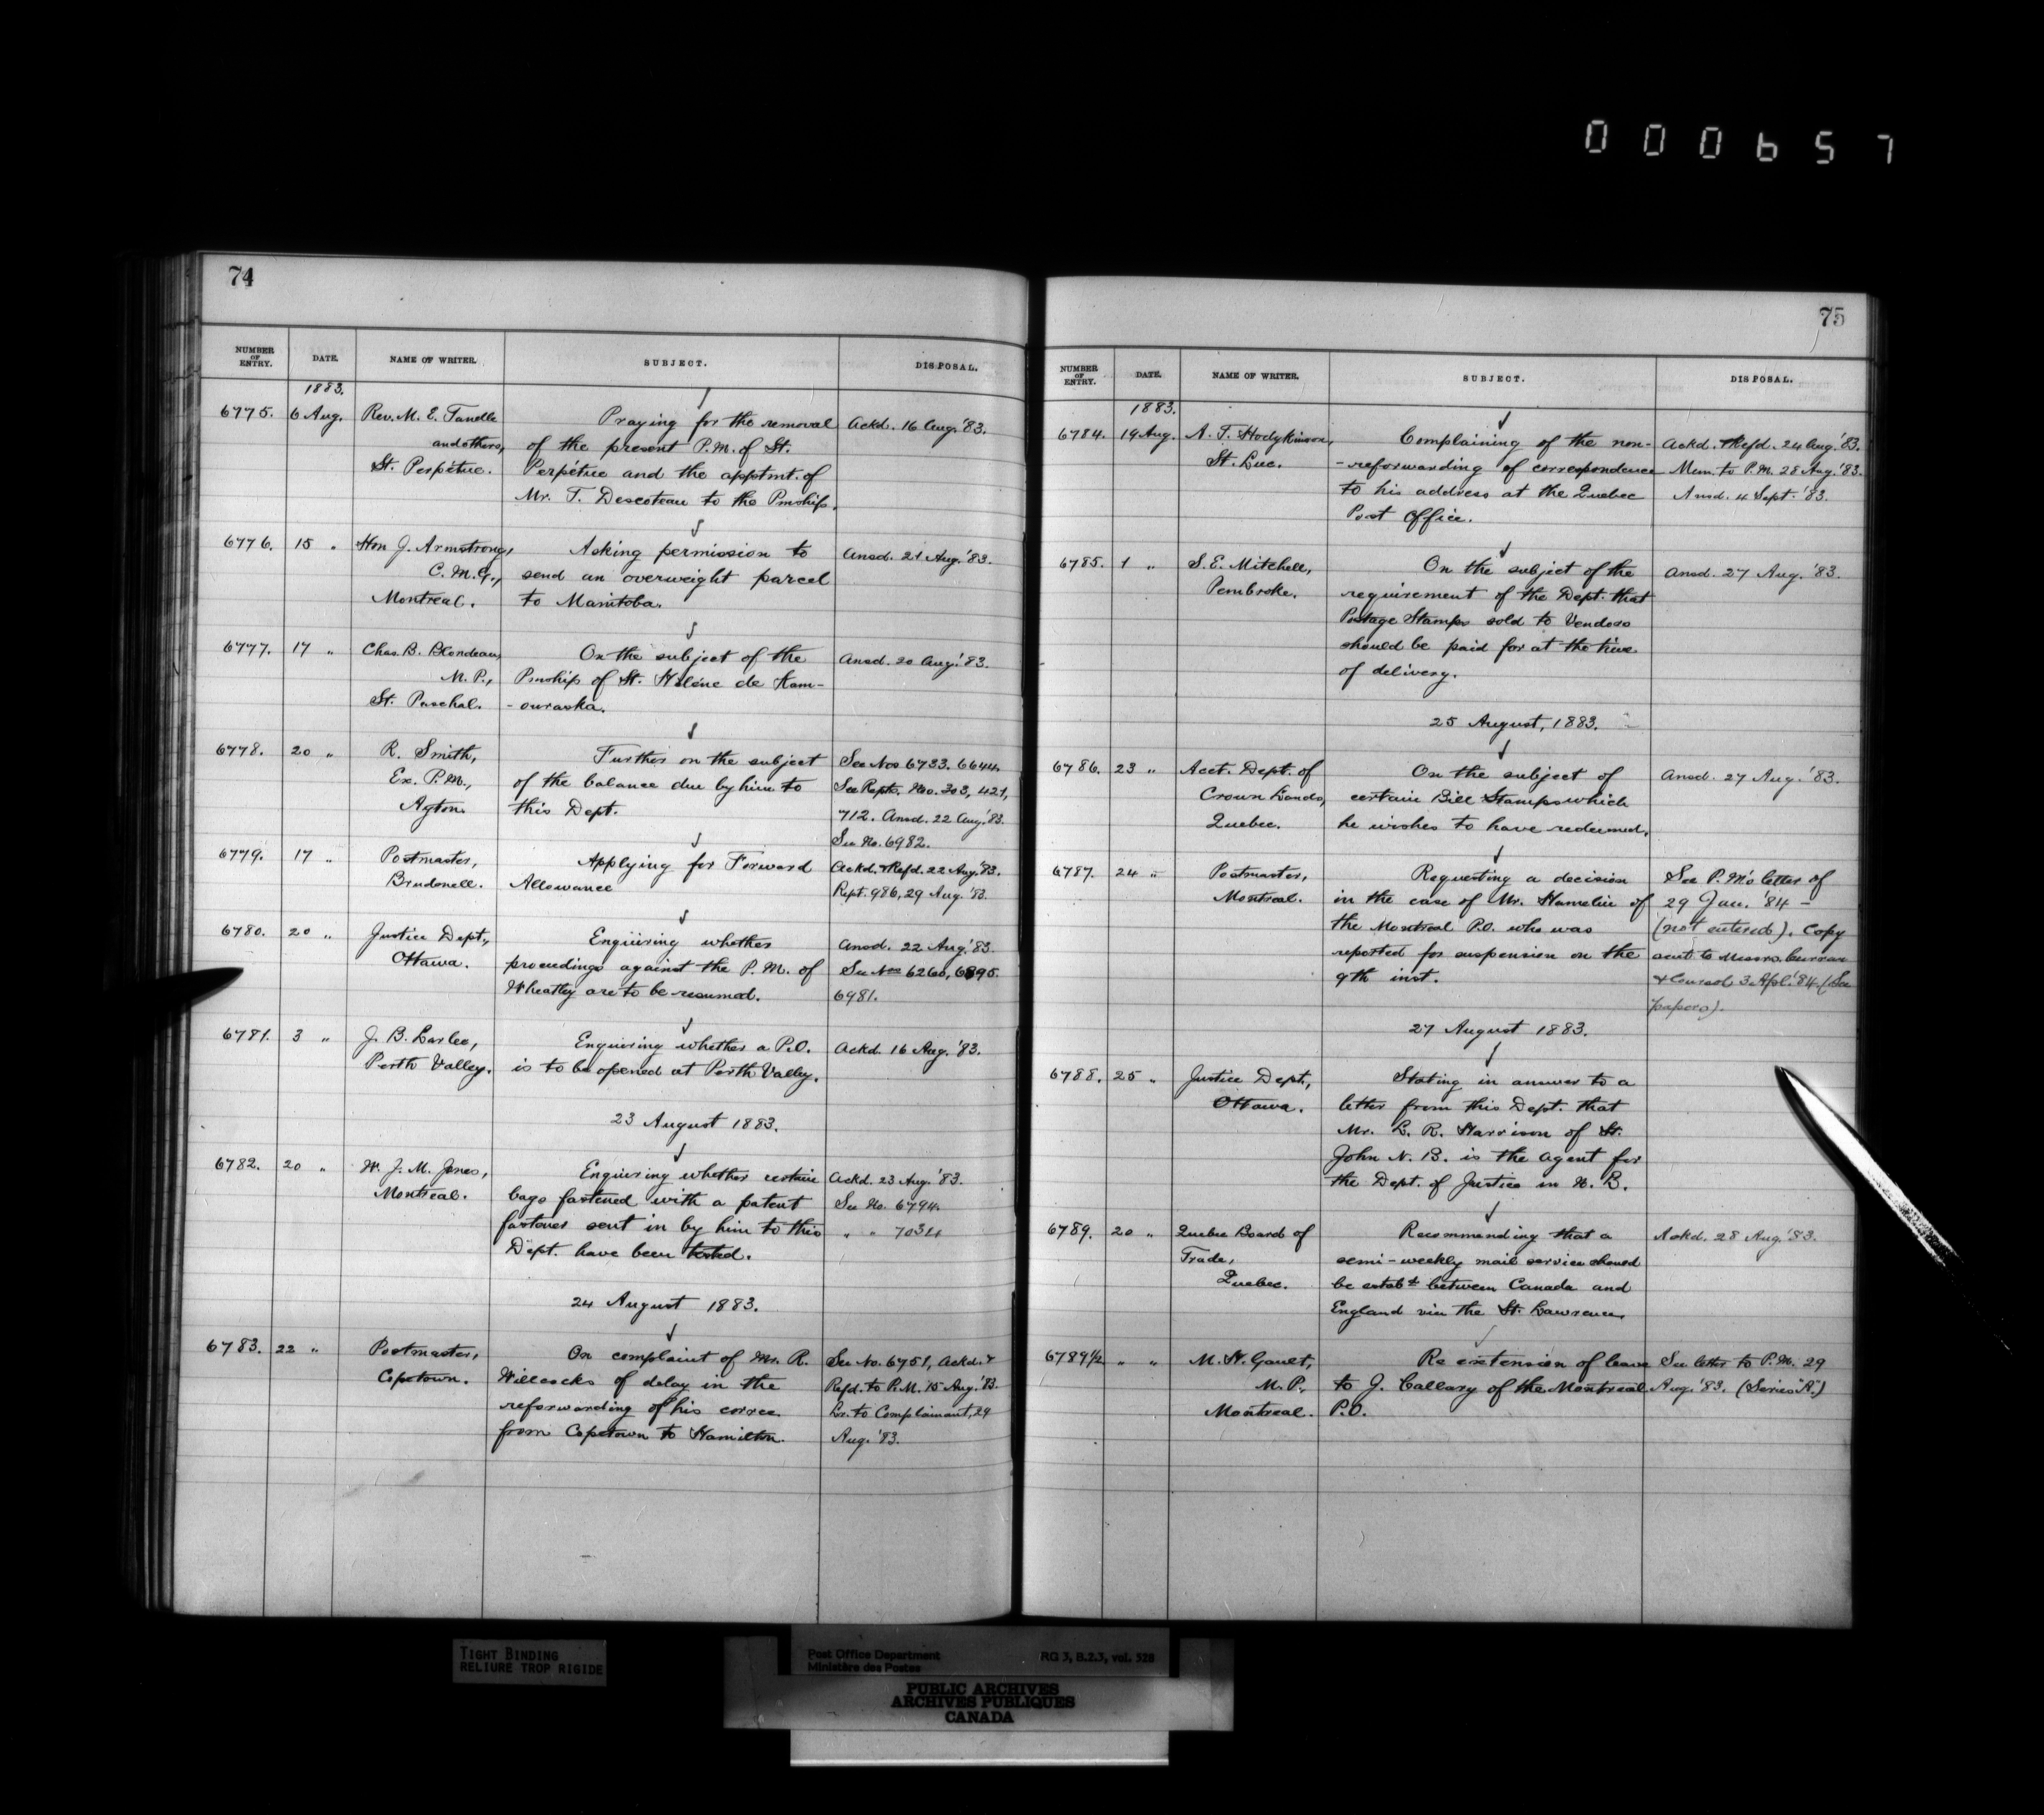 000657
74
NUMBER OF ENTRY. DATE. NAME OF WRITER. SUBJECT. DISPOSAL.
1883.
6775. 6 Aug. Rev. M. E. Tandle Praying for the removal Ackd. 16 Aug. '83.
and others, of the present P.M. of St.
St. Perpétue. Perpétue and the apptmt. of
Mr. T. Descoteau to the Pmship.
6776. 15 " Hon J. Armstrong, Asking permission to Ansd. 21 Aug. '83.
C.M.G., send an overweight parcel
Montreal. to Manitoba.
6777. 17 " Chas. B. Blondeau, On the subject of the Ansd. 20 Aug. '83.
M.P., Pmship of St. Héléne de Kam-
St. Paschal. -ouraska.
6778. 20 " R. Smith, Further on the subject See Nos 6733. 6644.
Ex. P.M., of the balance due by him to See Repts. No. 303, 421,
Ayton this Dept. 712. Ansd. 22 Aug. '83.
See No. 6982.
6779. 17 " Postmaster, Applying for Forward Ackd. & Refd. 22 Aug. '83.
Brudenell. Allowance Rept. 986, 29 Aug. '83.
6780. 20 " Justice Dept., Enquiring whether Ansd. 22 Aug. '83.
Ottawa. proceedings against the P.M. of See Nos 6260, 6895.
Wheatley are to be resumed. 6981.
6781. 3 " J. B. Larlee, Enquiring whether a P.O. Ackd. 16 Aug. '83.
Perth Valley. is to be opened at Perth Valley.
23 August 1883.
6782. 20 " W. J. M. Jones, Enquiring whether certain Ackd. 23 Aug. '83.
Montreal. bags fastened with a patent See No. 6794.
fastener sent in by him to this " " 7034
Dept. have been tested.
24 August 1883.
6783. 22 " Postmaster, On complaint of Mr. R. See No. 6751, Ackd. &
Copetown. Willcocks of delay in the Refd. to P.M. 15 Aug. '83.
reforwarding of his corrce. Lr. to Complainant, 29
from Copetown to Hamilton. Aug. '83.
75
NUMBER OF ENTRY. DATE. NAME OF WRITER. SUBJECT. DISPOSAL.
1883.
6784. 19 Aug. A. T. Hodgkinson, Complaining of the non- Ackd. & Refd. 24 Aug. '83.
St. Luc. -reforwarding of correspondence Mem. to P.M. 28 Aug. '83.
to his address at the Quebec Ansd. 4 Sept. '83.
Post Office.
6785. 1 " S. E. Mitchell, On the subject of the Ansd. 27 Aug. '83.
Pembroke. requirement of the Dept. that
Postage Stamps sold to Vendors
should be paid for at the time
of delivery.
25 August, 1883.
6786. 23 " Acct. Dept. of On the subject of Ansd. 27 Aug. '83.
Crown Lands, certain Bill Stamps which
Quebec. he wishes to have redeemed.
6787. 24 " Postmaster, Requesting a decision See P.M's letter of
Montreal. in the case of Mr. Hamelin of 29 Jan. '84 -
the Montreal P.O. who was (not entered). Copy
reported for suspension on the sent to Messrs. Curran
9th inst. & Coursol 3 Apl. '84 (See
papers).
27 August 1883.
6788. 25 " Justice Dept., Stating in answer to a
Ottawa. letter from this Dept. that
Mr. L. R. Harrison of St.
John N.B. is the Agent for
the Dept. of Justice in N.B.
6789. 20 " Quebec Board of Recommending that a Ackd. 28 Aug. '83.
Trade, semi-weekly mail service should
Quebec. be estabd between Canada and
England via the St. Lawrence.
6789 1/2 " " M. H. Gault, Re extension of leave See letter to P.M. 29
M.P., to J. Callary of the Montreal Aug. '83. (Series "A.")
Montreal. P.O.
TIGHT BINDING
RELIURE TROP RIGIDE
Post Office Department RG 3, B.2.3, vol. 528
Ministère des Postes
PUBLIC ARCHIVES
ARCHIVES PUBLIQUES
CANADA